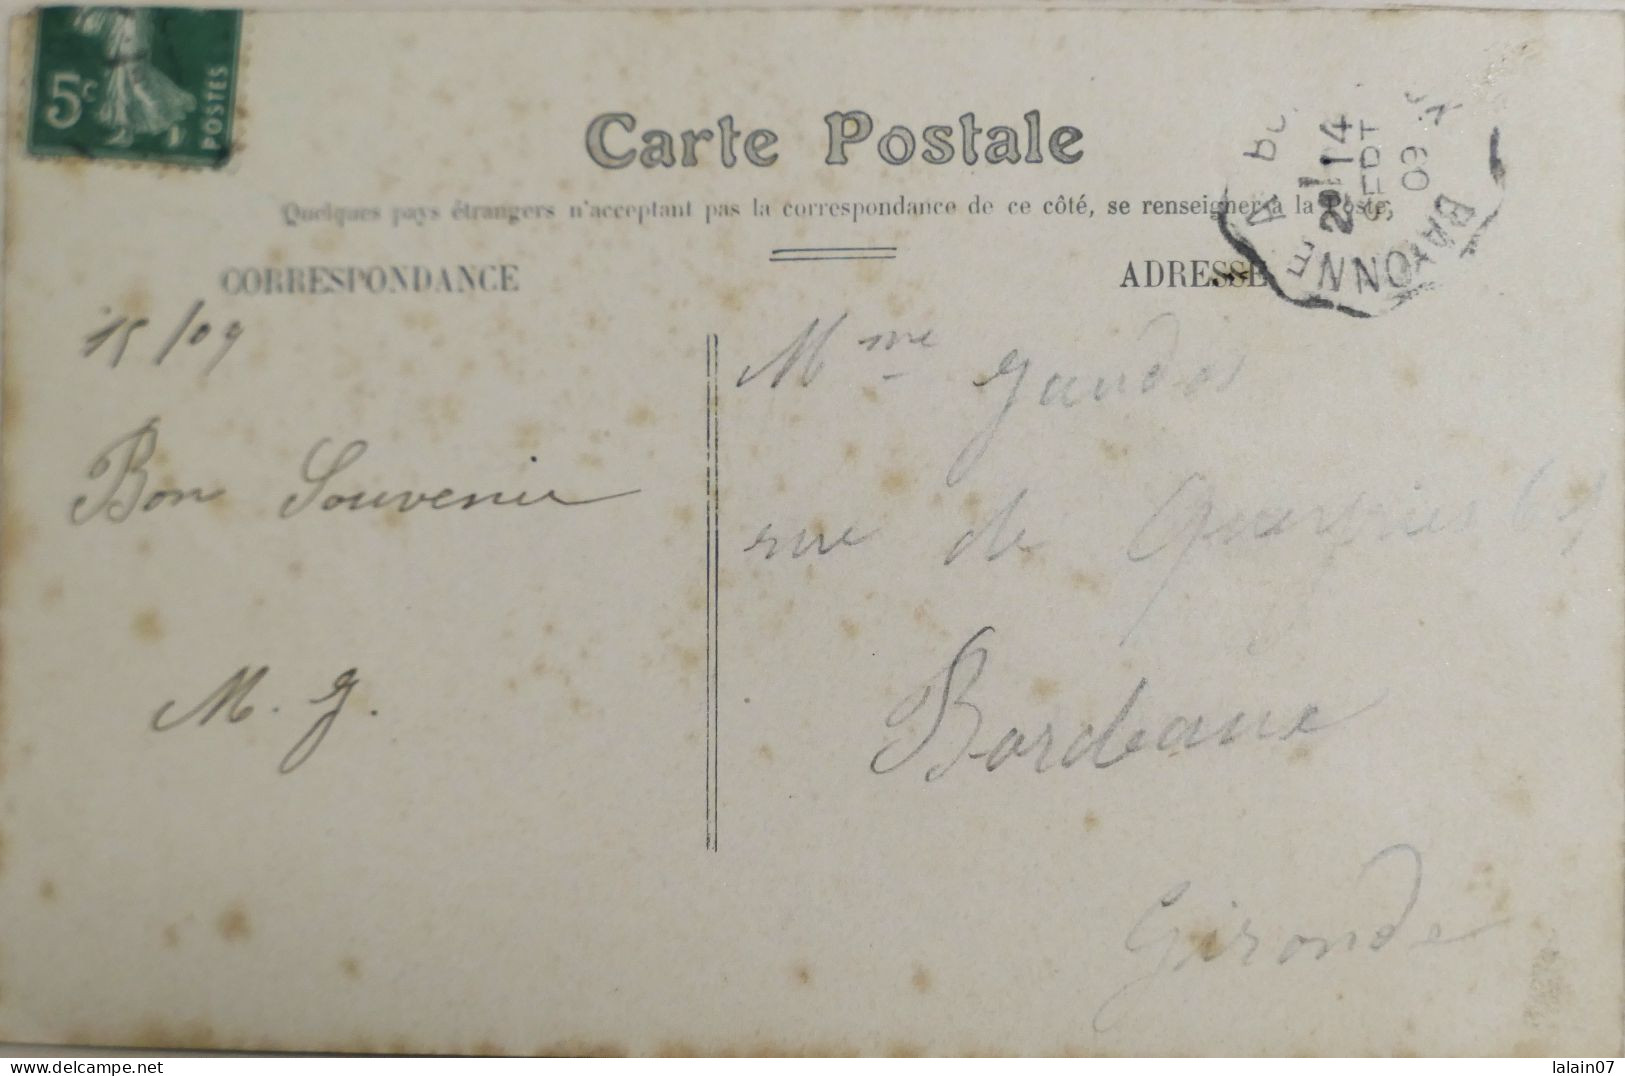 5c
POSTES
Carte Postale
Quelques pays étrangers n'acceptant pas la correspondance de ce côté, se renseigner à la Poste,
CORRESPONDANCE
ADRESSE
14
SEPT
09
BAYONN
15/09
Bon Souvenir
M. G.
Mme
rue de
Bordeaux
Gironde
www.delcampe.net
lalain07